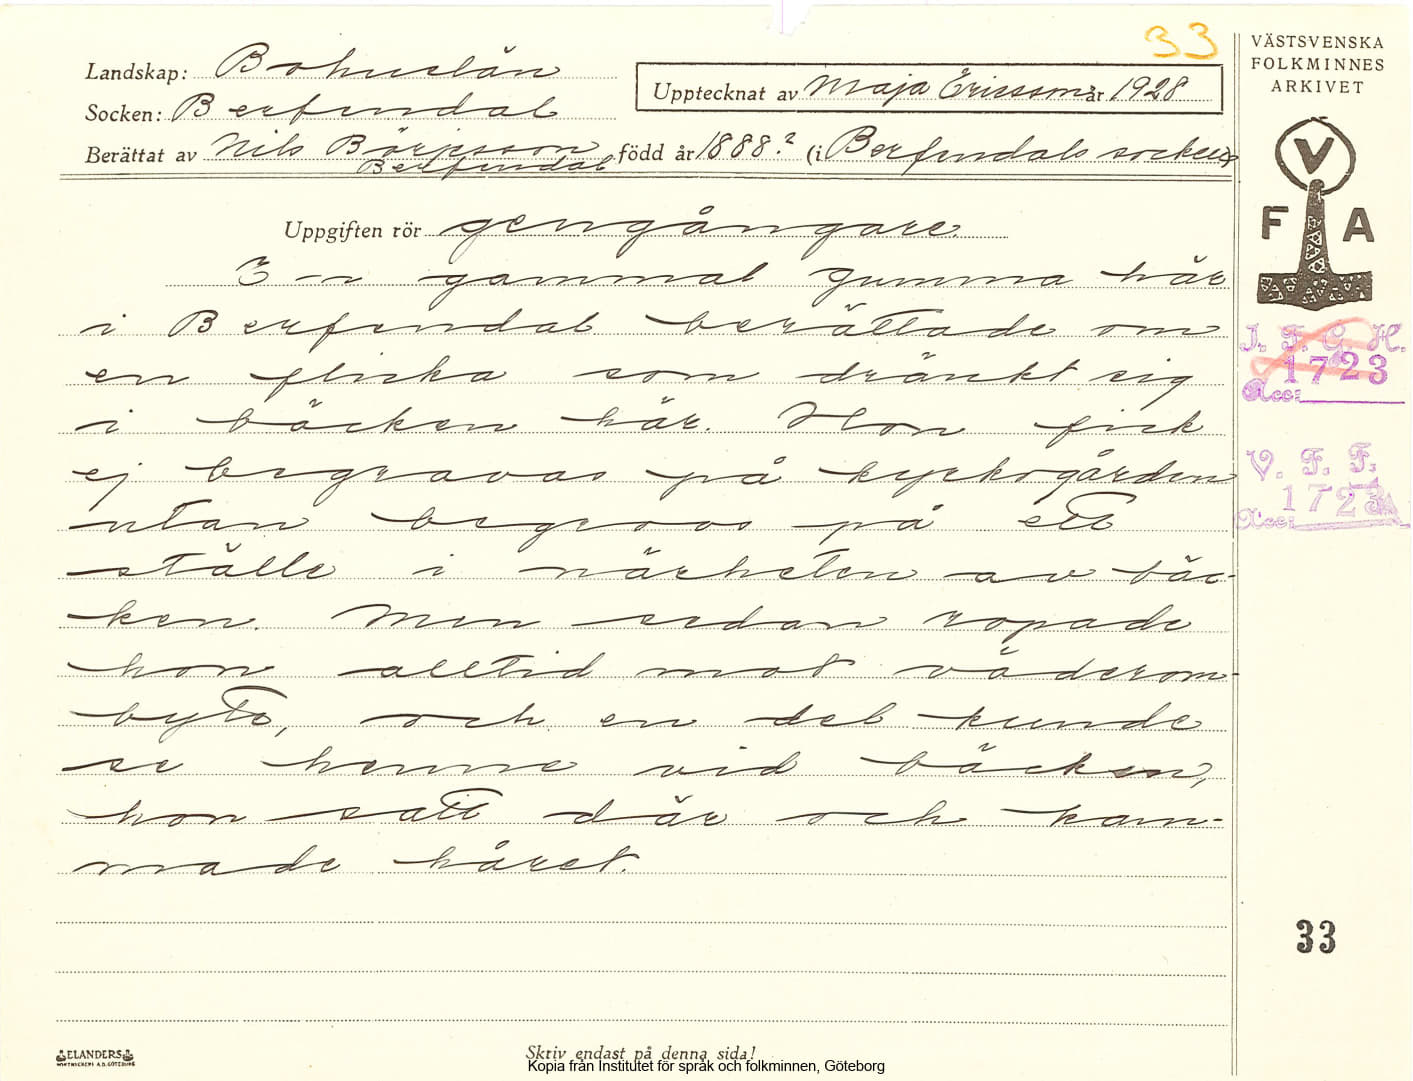 33
VÄSTSVENSKA
FOLKMINNES
ARKIVET
Landskap: Bohuslän
Upptecknat av Maja Ericsson år 1928
Socken: Berfendal
Berättat av Nils Börjesson född år 1888? (i Berfendals socken)
Berfendal
V
F A
Uppgiften rör gengångare.
En gammal gumma här
i Berfendal berättade om
en flicka som dränkt sig
i bäcken här. Hon fick
ej begravas på kyrkogården
utan begrovs på ett
ställe i närheten av bäc-
ken. Men sedan ropade
hon alltid mot väderom-
byte, och en del kunde
se henne vid bäcken,
hon satt där och kam-
made håret.
I. F. G. H.
1723
Acc:
V. F. F.
1723
Acc:
33
ELANDERS
Skriv endast på denna sida!
Kopia från Institutet för språk och folkminnen, Göteborg